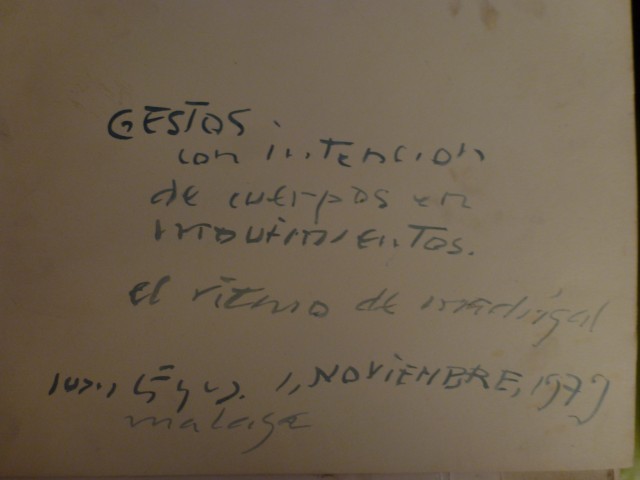 GESTOS.
con intencion
de cuerpos en
movimientos.
el ritmo de madrigal
1, NOVIEMBRE, 1979
malaga